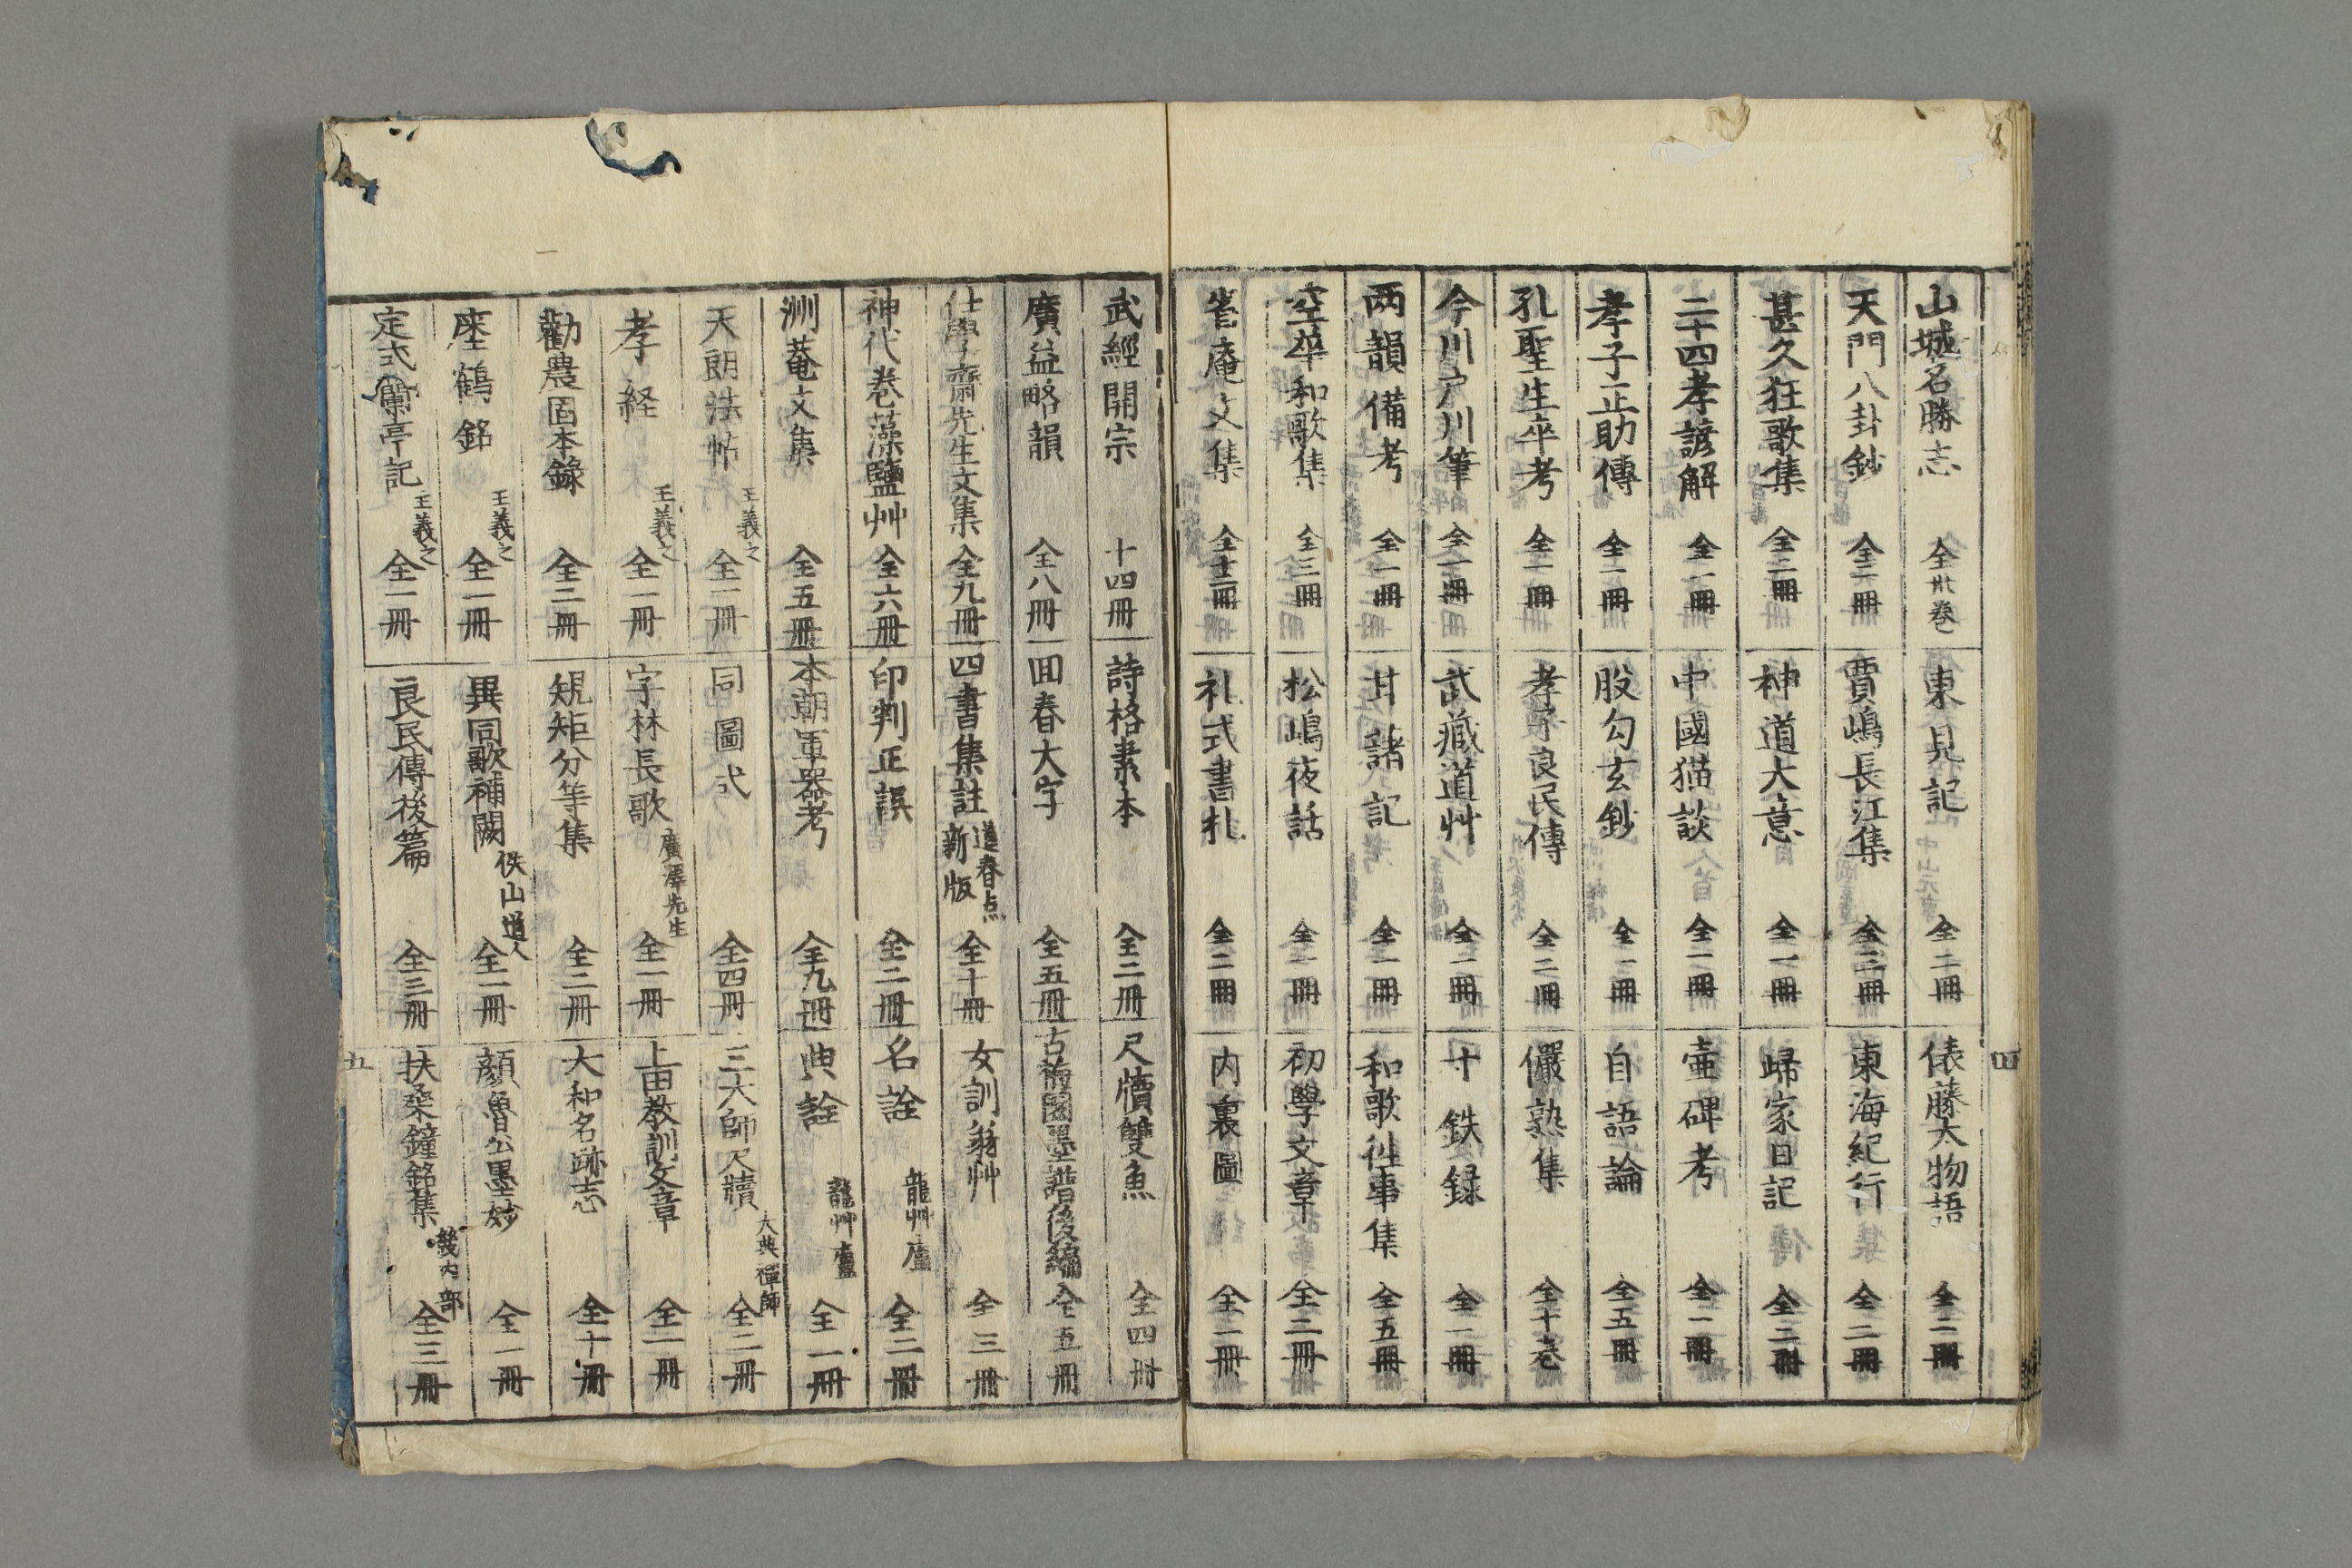 山城名勝志 全廿卷
東見記 全二冊
俵藤太物語 全二冊
天門八卦鈔 全二冊
賈嶋長江集 全三冊
東海紀行 全二冊
甚久狂歌集 全二冊
神道大意 全一冊
歸家日記 全二冊
二十四孝諺解 全一冊
中國猫談 全一冊
壷碑考 全一冊
孝子正助傳 全一冊
股勾玄鈔 全一冊
自語論 全五冊
孔聖生卒考 全一冊
孝字良民傳 全二冊
儼熟集 全十巻
今川戸川筆 全一冊
武藏道艸 全一冊
寸鉄録 全一冊
两韻備考 全一冊
甘諸記 全一冊
和歌徃事集 全五冊
空華和歌集 全三冊
松嶋夜話 全一冊
初學文章 全二冊
省庵文集 全十二冊
礼式書札 全二冊
内裏圖 全一冊
四
武經開宗 十四冊
詩格素本 全二冊
尺牘雙魚 全四冊
廣益略韻 全八冊
囬春大字 全五冊
古梅園墨譜後編 全五冊
仕學齋先生文集 全九冊
四書集註 道春点 新版 全十冊
女訓翁艸 全三冊
神代卷藻鹽艸 全六冊
印判正誤 全二冊
名詮 龍艸廬 全二冊
洲菴文集 全五冊
本朝軍器考 全九冊
典詮 龍艸廬 全一冊
天朗法帖 王義之 全一冊
同圖式 全四冊
三大師尺牘 大典禪師 全二冊
孝経 王義之 全一冊
字林長歌 廣澤先生 全一冊
上田教訓文章 全一冊
勸農固本錄 全二冊
規矩分等集 全二冊
大和名跡志 全十冊
座鶴銘 王義之 全一冊
異同歌補闕 佚山道人 全一冊
顔魯公墨妙 全一冊
定式蘭亭記 王義之 全一冊
良民傳後篇 全三冊
扶桒鐘銘集 畿内部 全三冊
五